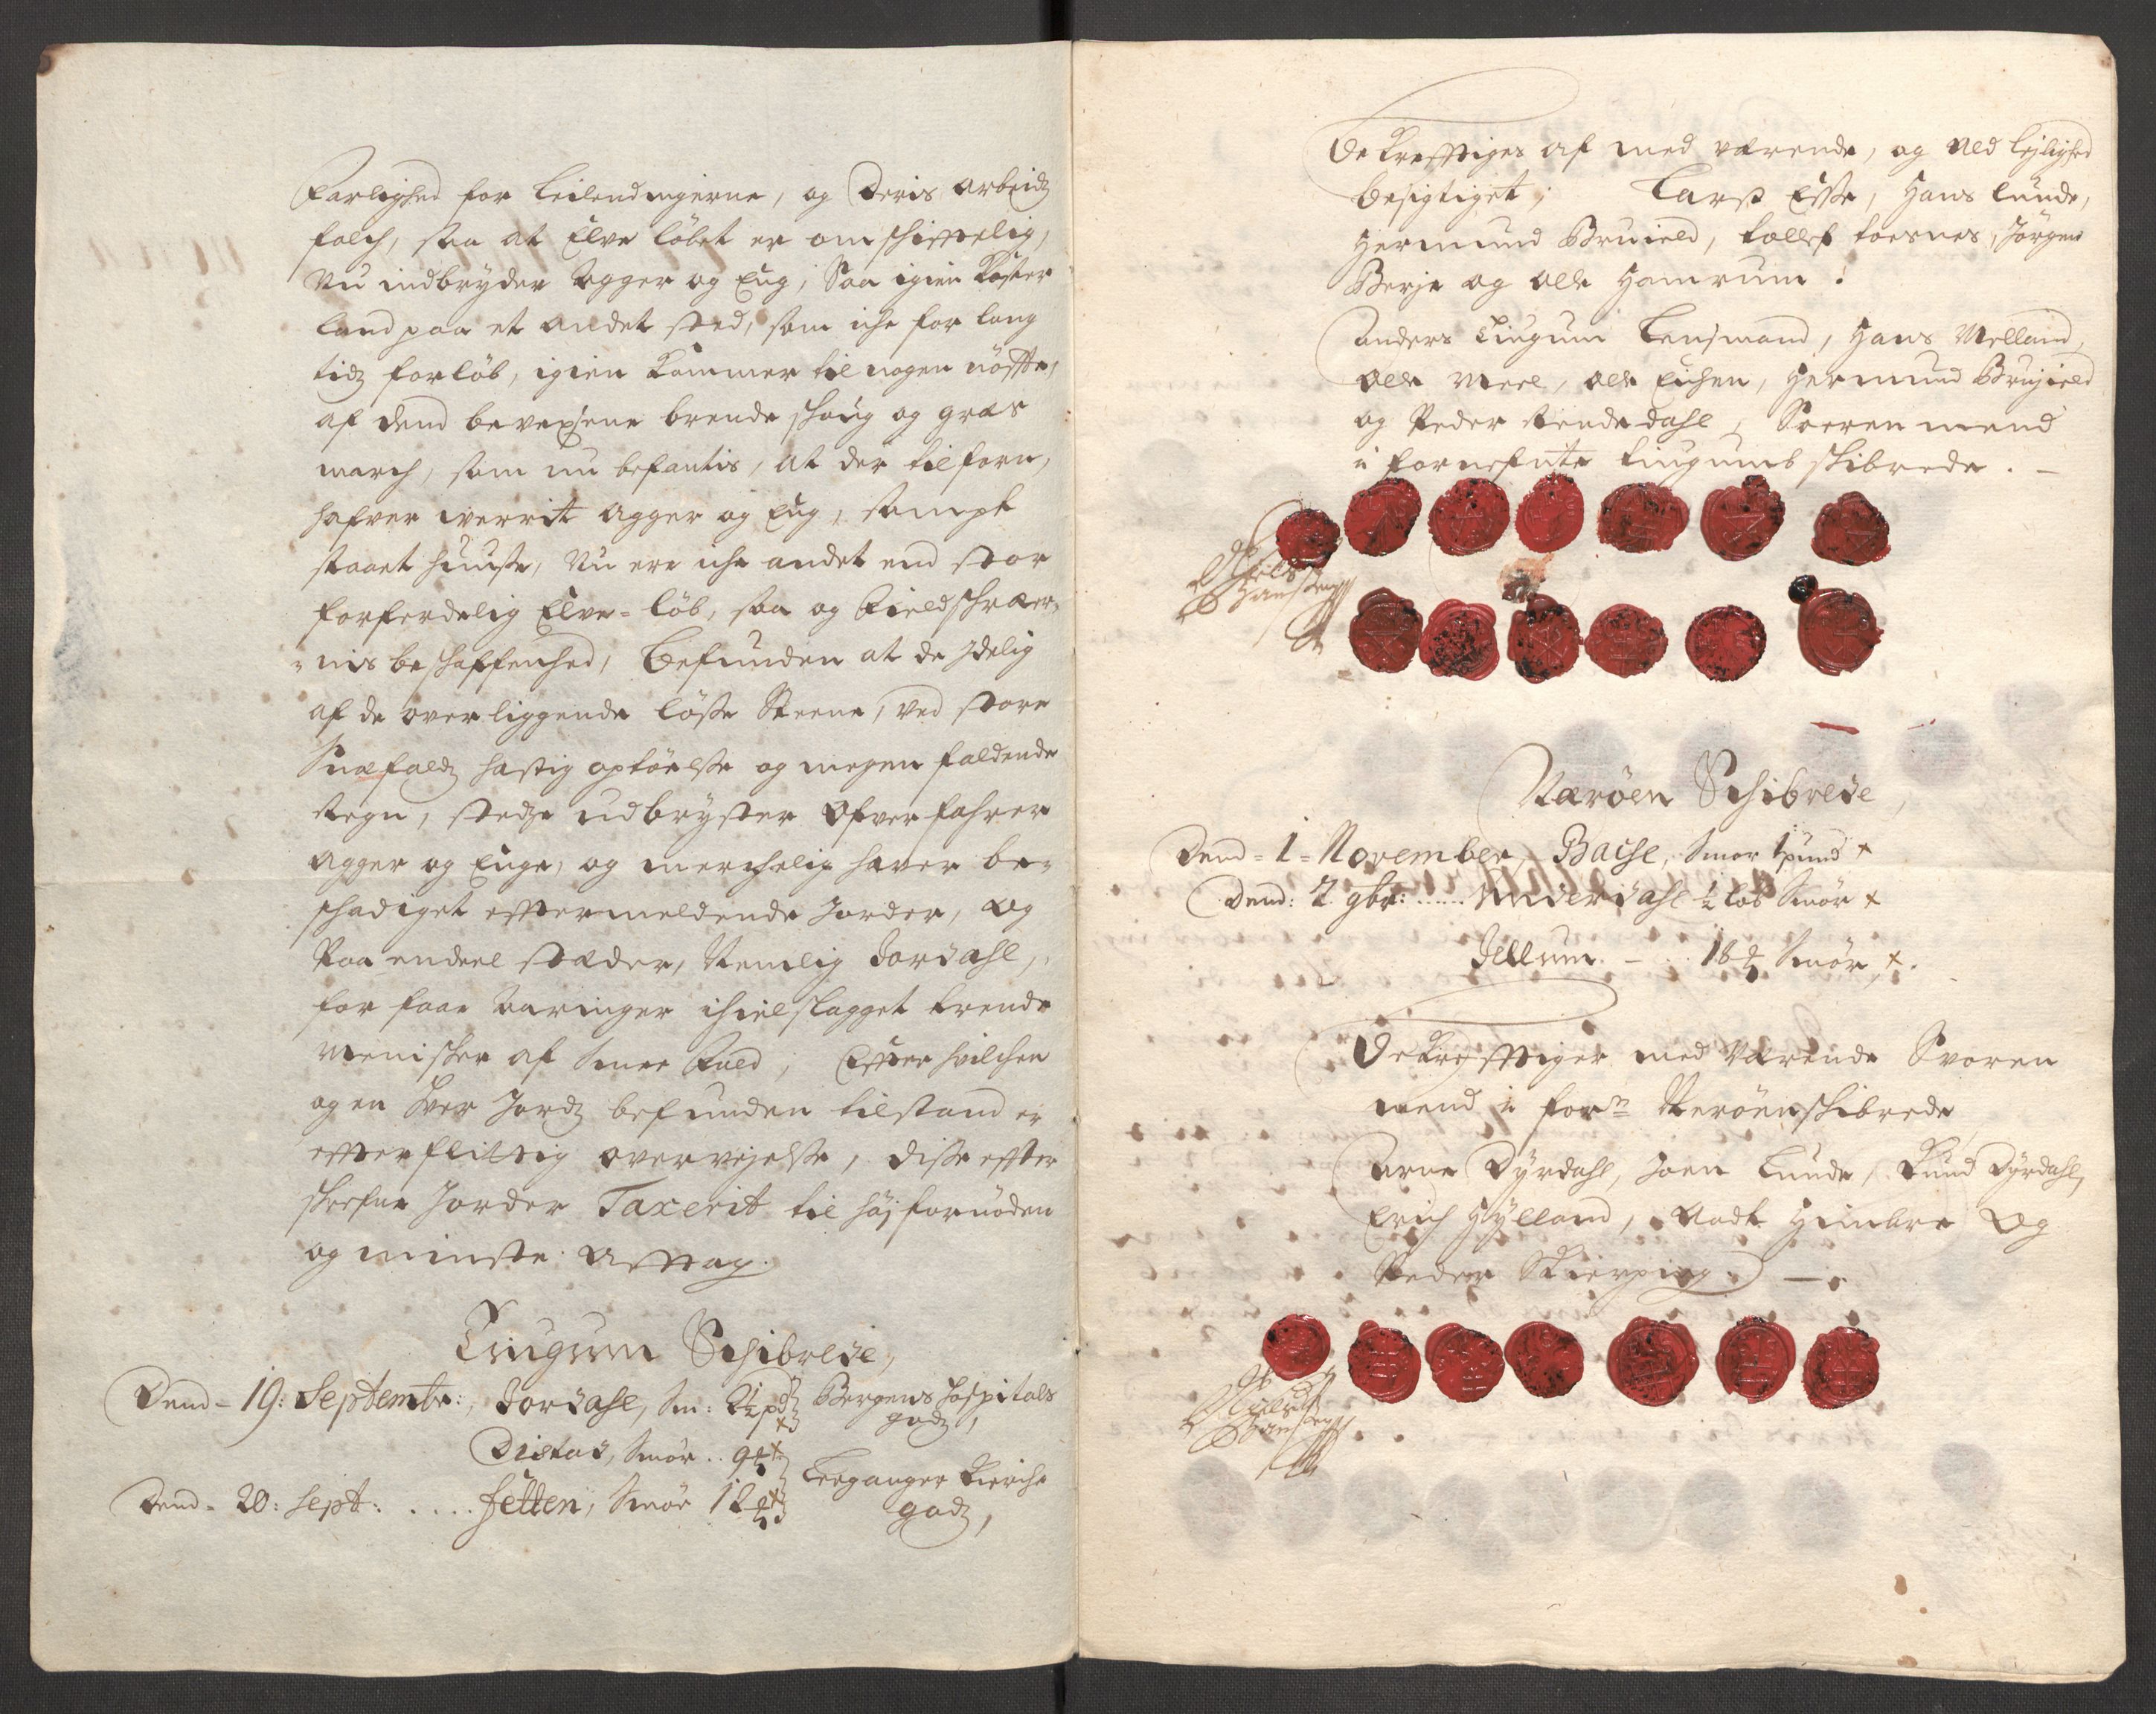 Farlighed for Leilendingerne, og Deris arbeidz
folch, saa at Elve løbet er omschifftelig,
Nu indbryder Agger og Eng, Saa igien kaster
land paa et andet sted, som iche for lang
tidz forløb, igien kommer til nogen nøtte,
af dend bevexsene brende schoug og græs
march, som nu befantis, at der tilforn,
hafver werrit Agger og Eng, sampt
staaet huuse, Nu ere iche andet end stor
forferdelig Elve-løb, saa og Fieldschrær-
-nis beschaffenhed, Befunden at de Idelig
af de overliggende løse Steene, ved store
Sneefaldz hastig optøelse og megen faldende
Regn, stedze udbryster Ofver fahrer
Agger og Enge, og merchelig haver be-
schadiget efftermeldende Jorder, Og
Paa endeel stæder, Nemlig Jordahl,
for faae Aaringer ihielslagget trende
Menischer af Snee Field, Effter hvilchen
og en hver Jordz befunden tilstand er
effter flittig overvejelse, disse effter
schrefne Jorder Taxerit til høj fornøden
og minste Afftag.
Tingum Schibrede,
Dend - 19: Septembr:, Jordahl, Sm: 2½ pd Bergens Hospitals
godz,
Distad, Smør .. 9
Dend - 20: Sept: .... Fetten, Smør 12 Leeganger Kirche
godz,
Bekrefftiges af med værende, og Ved lejlighed
besigtiget, Larss Esse, Hans Lunde,
Hermund Bruield, Tollef Toesnes, Jørgen
Berje og Olle Hamrum :
Anders Tingum Lensmand, Hans Melland,
Olle Meel, Olle Eichen, Hermund Brujield
og Peder Rendedahl, Soeren mend
i fornefnte Tingums schibrede. -
Niels
Hansen
Nærøen Schibrede,
Dend - 1 - November, Bache, Smør 1 pund x
Dend: 2. 9br: ...... Underdahl ½ løb Smør x
Jellum. - .. 16 Smør x.
Bekrefftiger med Værende Svoren
mend i forn Nerøenschibrede
Arne Dyrdahl, Joen Lunde, Knud Dyrdahl,
Erich Hylland, Aadt Himbre Og
Peder Skierping. -
Niels
Hansen